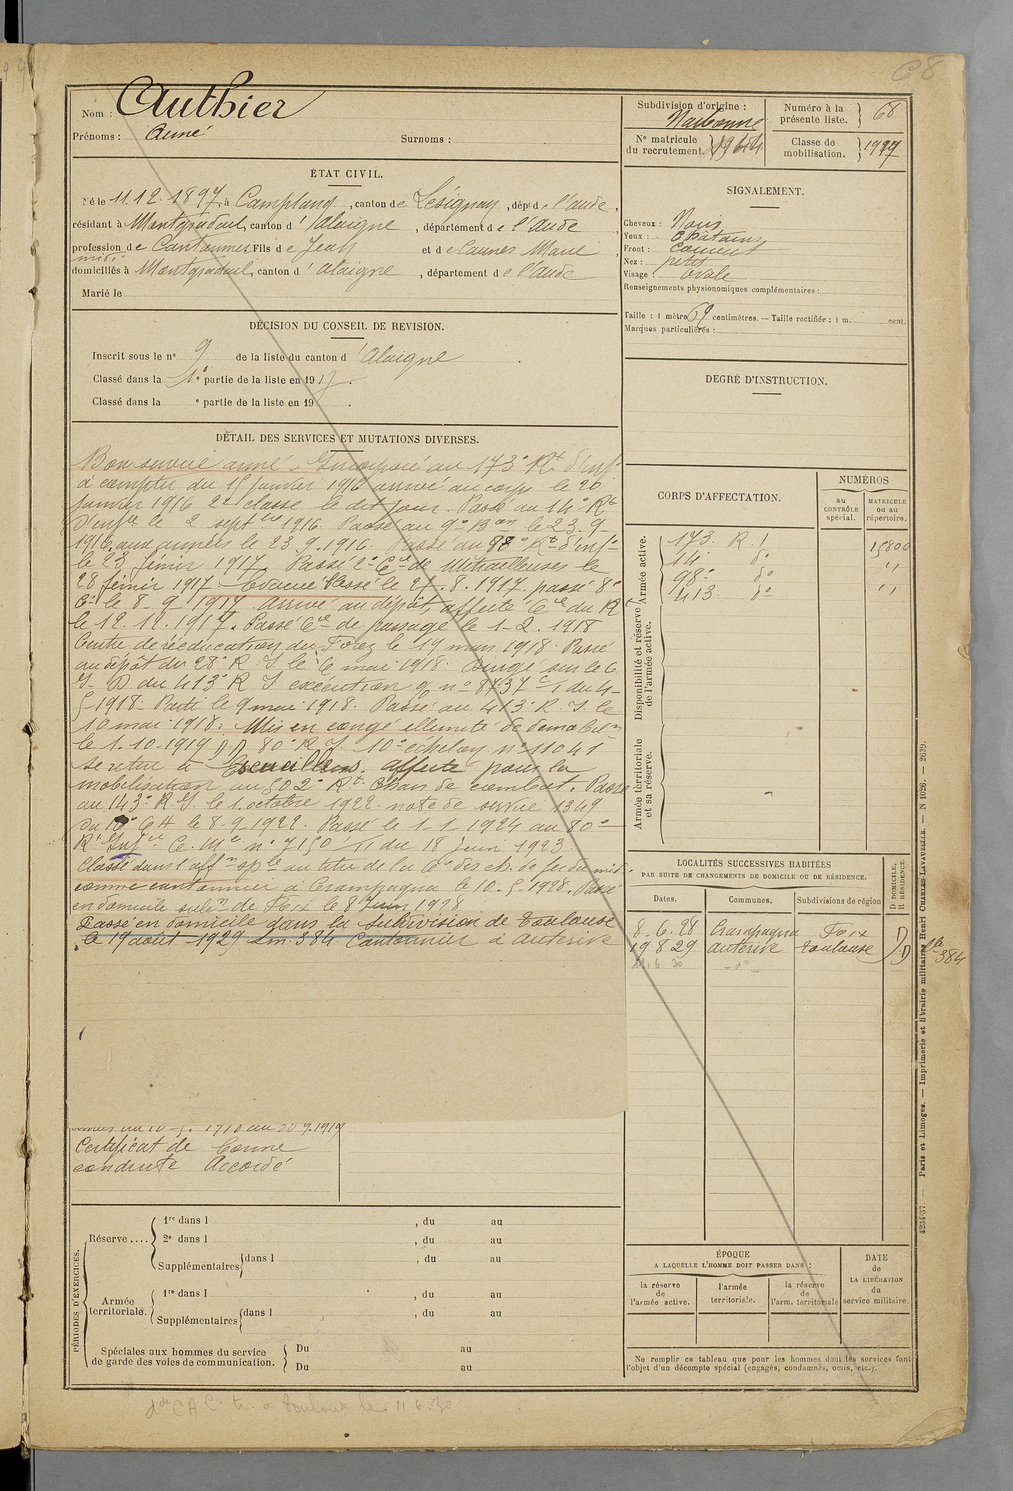 C8
Nom : Authier
Prénoms : Aimé Surnoms :
ÉTAT CIVIL.
Né le 11.12.1897, à Camplong, canton de Lésignan, dép de l'aude,
résidant à Montgradail, canton d'alaigne, département de l'Aude
profession de Cantonnier Fils de Jean et de Caunes Marie
domiciliés à Montgradail, canton d'alaigne, département de l'aude
Marié le
DÉCISION DU CONSEIL DE REVISION.
Inscrit sous le n° 9 de la liste du canton d'Alaigne
Classé dans la 1e partie de la liste en 1917.
Classé dans la e partie de la liste en 19 .
DÉTAIL DES SERVICES ET MUTATIONS DIVERSES.
Bon service armé. Incorporé au 173° Rt d'inf
à compter du 15 Janvier 1916 arrivé au corps le 20
Janvier 1916 2e classe le dit jour. Passé au 14° Rt
d'infie le 2 septbre 1916 Passé au 9° Bon le 23.9
1916 aux armées le 23.9.1916. Passé au 98° Rt d'inf
le 23 février 1917. Passé 2° Cie de Mitrailleuses le
28 février 1917. Evacué blessé le 27.8.1917. passé 8°
Cie le 8-9-1917 arrivé au dépôt, affecté Cie du R
le 12.12.1917. Passé Cie de passage le 1-2.1918
Centre de rééducation du Forez le 19 mars 1918. Passé
au dépôt du 98° R I le 6 mai 1918. Dirigé sur le C
I. D. du 413° R I exécution n° 8737 du 4-
5 1918. Parti le 9 mai 1918. Passé au 413° R. I. le
10 mai 1918. Mis en congé illimité de démobon
le 1.10.1919 D.D 80° R.I. 10° échelon n° 11041
se retire à Escueillens. affecté pour la
mobilisation au 502° Rt chars de combat. Passé
au 143° R.I le 1 octobre 1922 note de service 1349
du 16° CA le 8-9-1922. Passé le 1-1-1924 au 80°
Rt Infie C. Mle n° 7150/11 du 18 juin 1923.
Classé dans l'affon sple au titre de la Cie des ch. de fer du midi
comme cantonnier à Crampagna le 10.5.1928. Passé
en domicile subon de Foix le 8 Juin 1928
Passé en domicile dans la subdivision de Toulouse
le 19 août 1929 Lm 384 Cantonnier à auterive
au 30.9.1919
Certificat de bonne
conduite Accordé
PÉRIODES D'EXERCICES.
Réserve....
1re dans l , du au
2e dans l , du au
Supplémentaires dans l , du au
Armée territoriale.
1re dans l , du au
Supplémentaires dans l , du au
Spéciales aux hommes du service de garde des voies de communication.
Du au
Du au
Subdivision d'origine : Narbonne
Numéro à la présente liste. 68
N° matricule du recrutement
Classe de mobilisation. 1917
SIGNALEMENT.
Cheveux : Noirs
Yeux : Châtains
Front :
Nez : petit
Visage : ovale
Renseignements physionomiques complémentaires :
Taille : 1 mètre 69 centimètres. — Taille rectifiée : 1 m. cent.
Marques particulières :
DEGRÉ D'INSTRUCTION.
CORPS D'AFFECTATION.
NUMÉROS
au CONTRÔLE spécial.
MATRICULE ou au répertoire.
Armée active.
173. R. I 15800
14. d° "
98° d° "
413. d° "
Disponibilité et réserve de l'armée active.
Armée territoriale et sa réserve.
LOCALITÉS SUCCESSIVES HABITÉES
PAR SUITE DE CHANGEMENTS DE DOMICILE OU DE RÉSIDENCE.
D DOMICILE, R RÉSIDENCE.
Dates. Communes. Subdivisions de région
8.6.28 Crampagna Foix D
19 8 29 auterive toulouse D 384
11.6.30 - d° -
ÉPOQUE
A LAQUELLE L'HOMME DOIT PASSER DANS :
DATE de LA LIBÉRATION du service militaire.
la réserve de l'armée active.
l'armée territoriale.
la réserve de l'arm. territoriale
Ne remplir ce tableau que pour les hommes dont les services font
l'objet d'un décompte spécial (engagés, condamnés, omis, etc.).
Paris et Limoges. — Imprimerie et librairie militaires Henri CHARLES-LAVAUZELLE. — N 1026. — 2639.
à Toulouse le 11 6 30